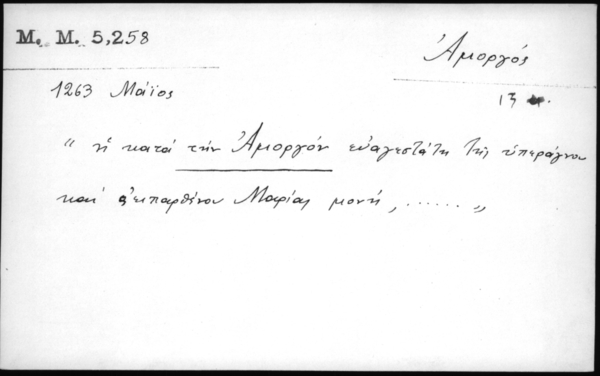 M. M. 5,258
Ἀμοργός
1263 Μάϊος
13
“ ἡ κατά τήν Ἀμοργόν εὐαγεστάτη τῆς ὑπεράγνου
καί ἀειπαρθένου Μαρίας μονή, ...... „